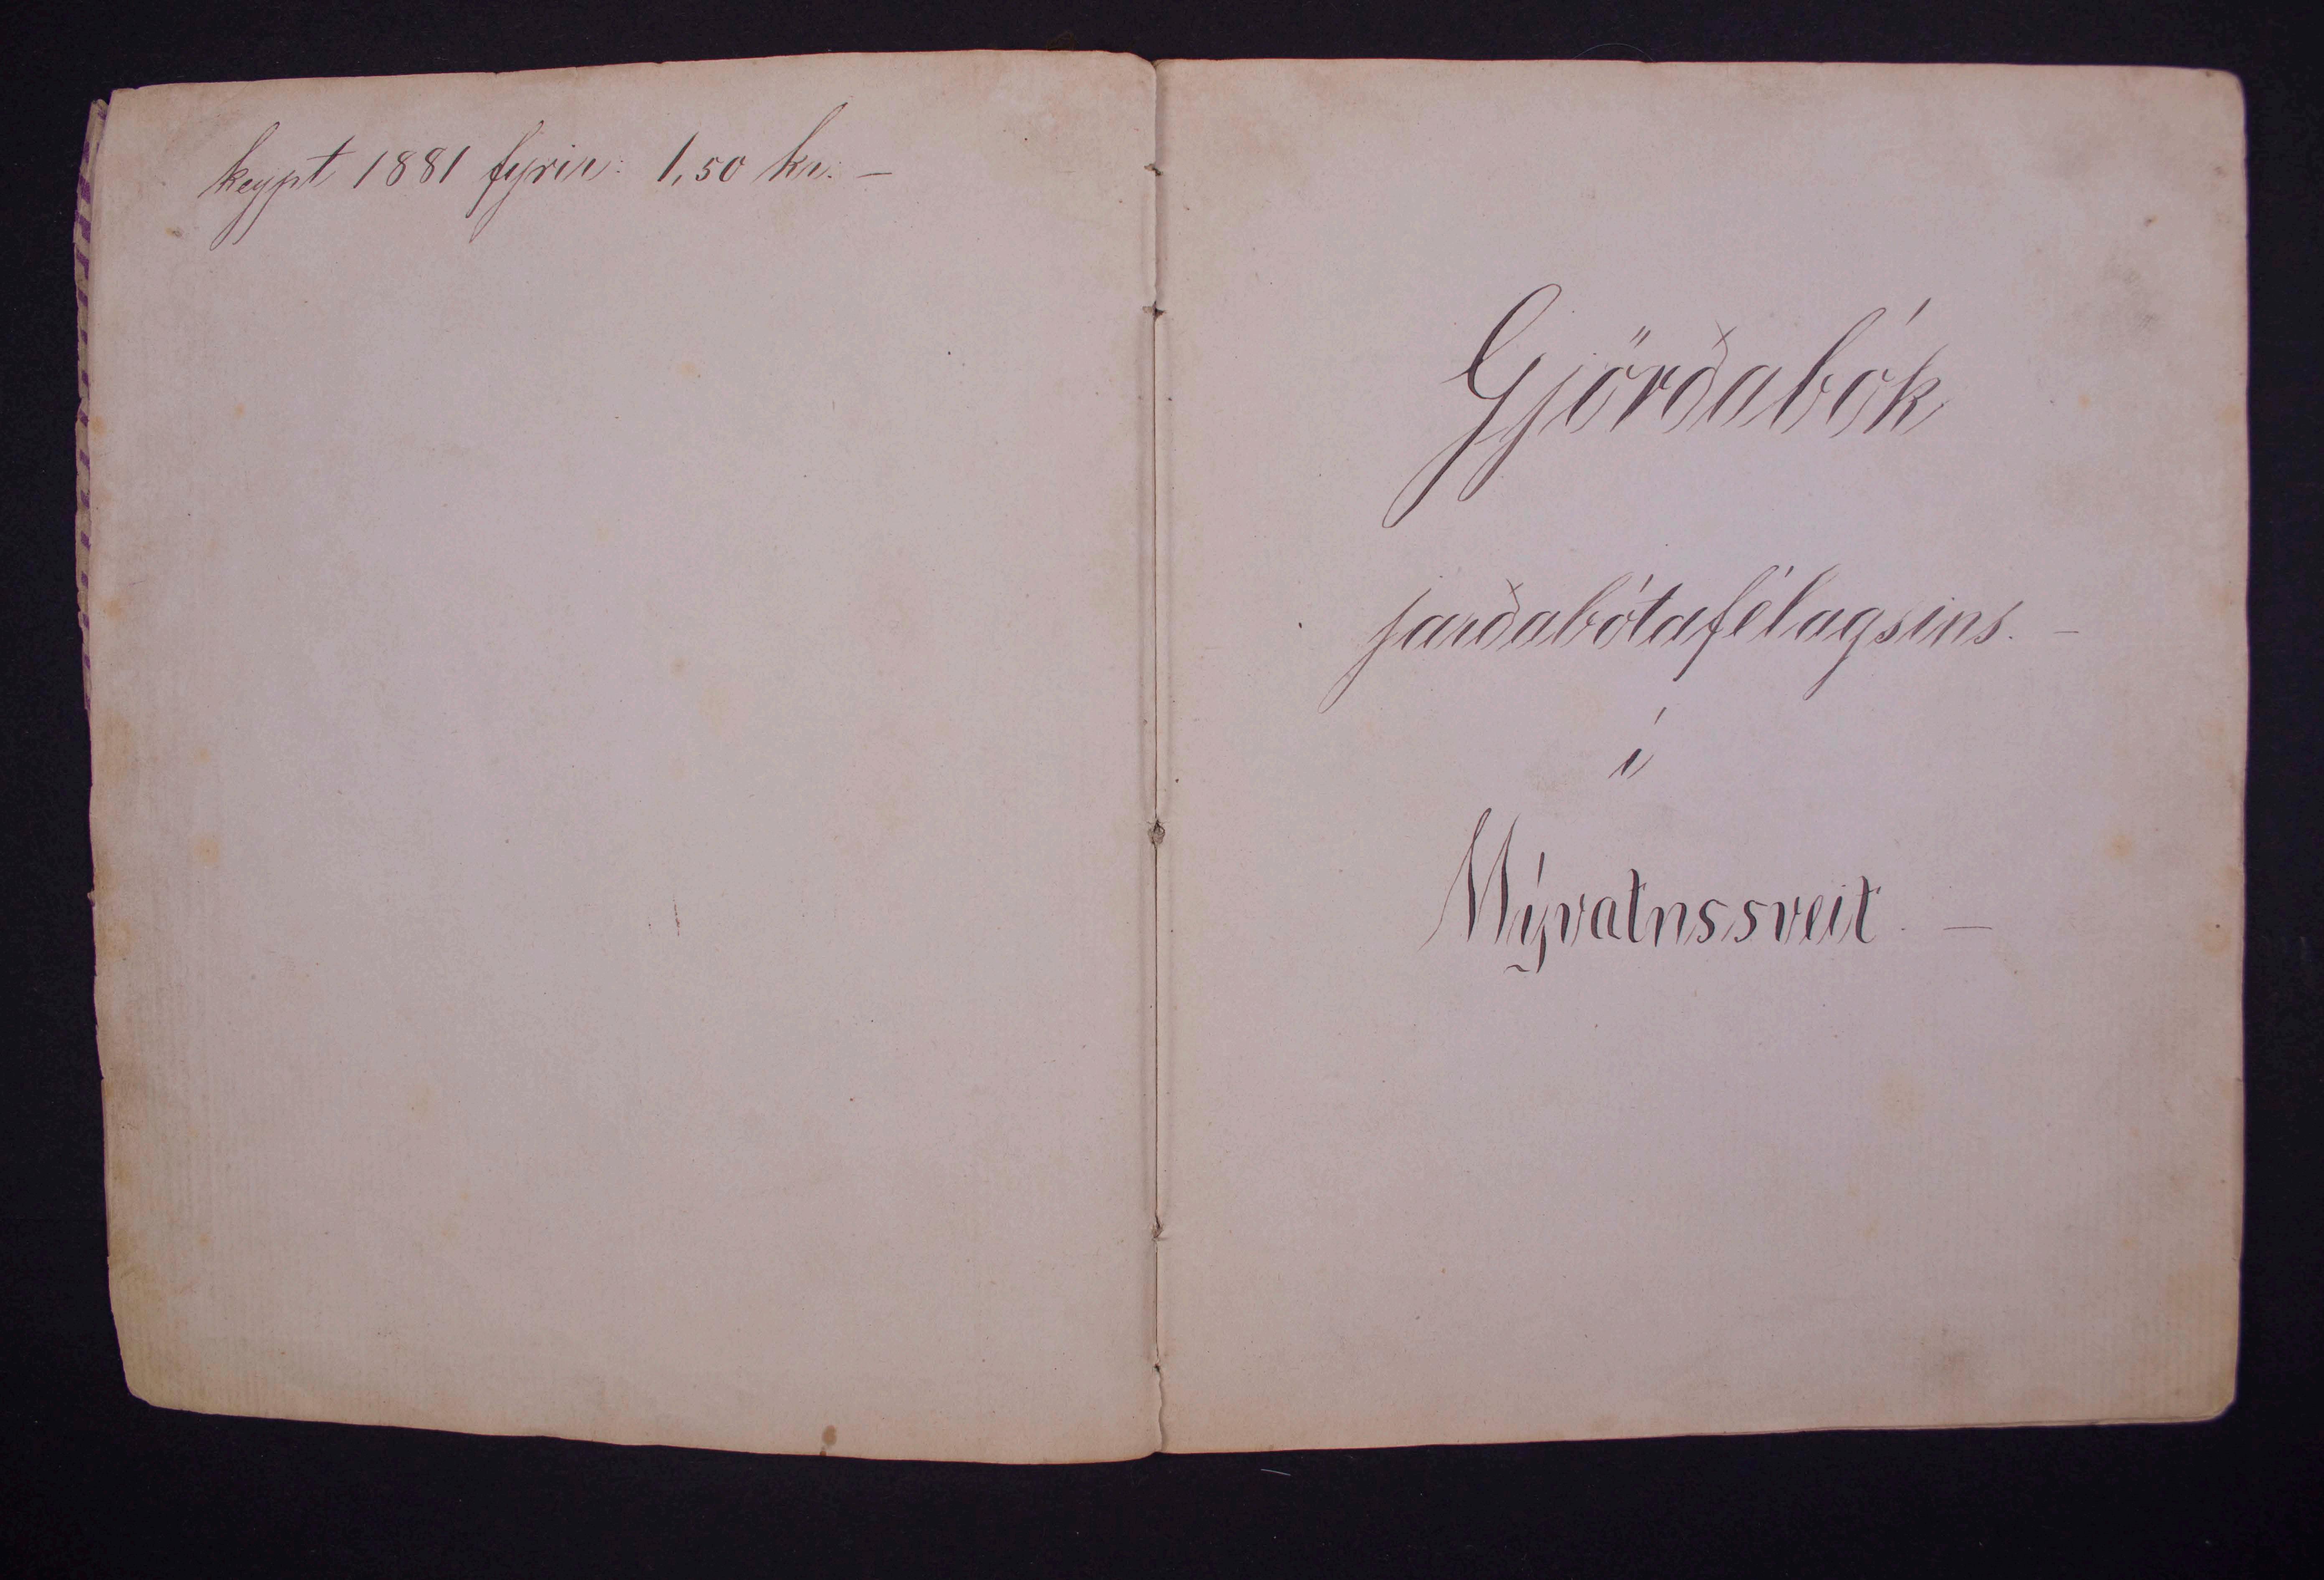 keypt 1881 fyrir: 1,50 kr. —
Gjörðabók
jarðabótafélagsins. —
í
Mývatnssveit. —